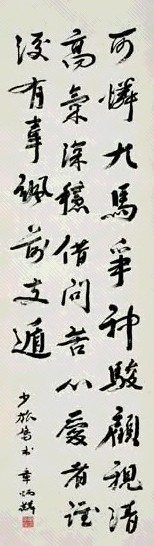 可憐九馬爭神駿顧視清
高氣深穩借問苦心愛者誰
後有韋諷前支遁
章炳麟